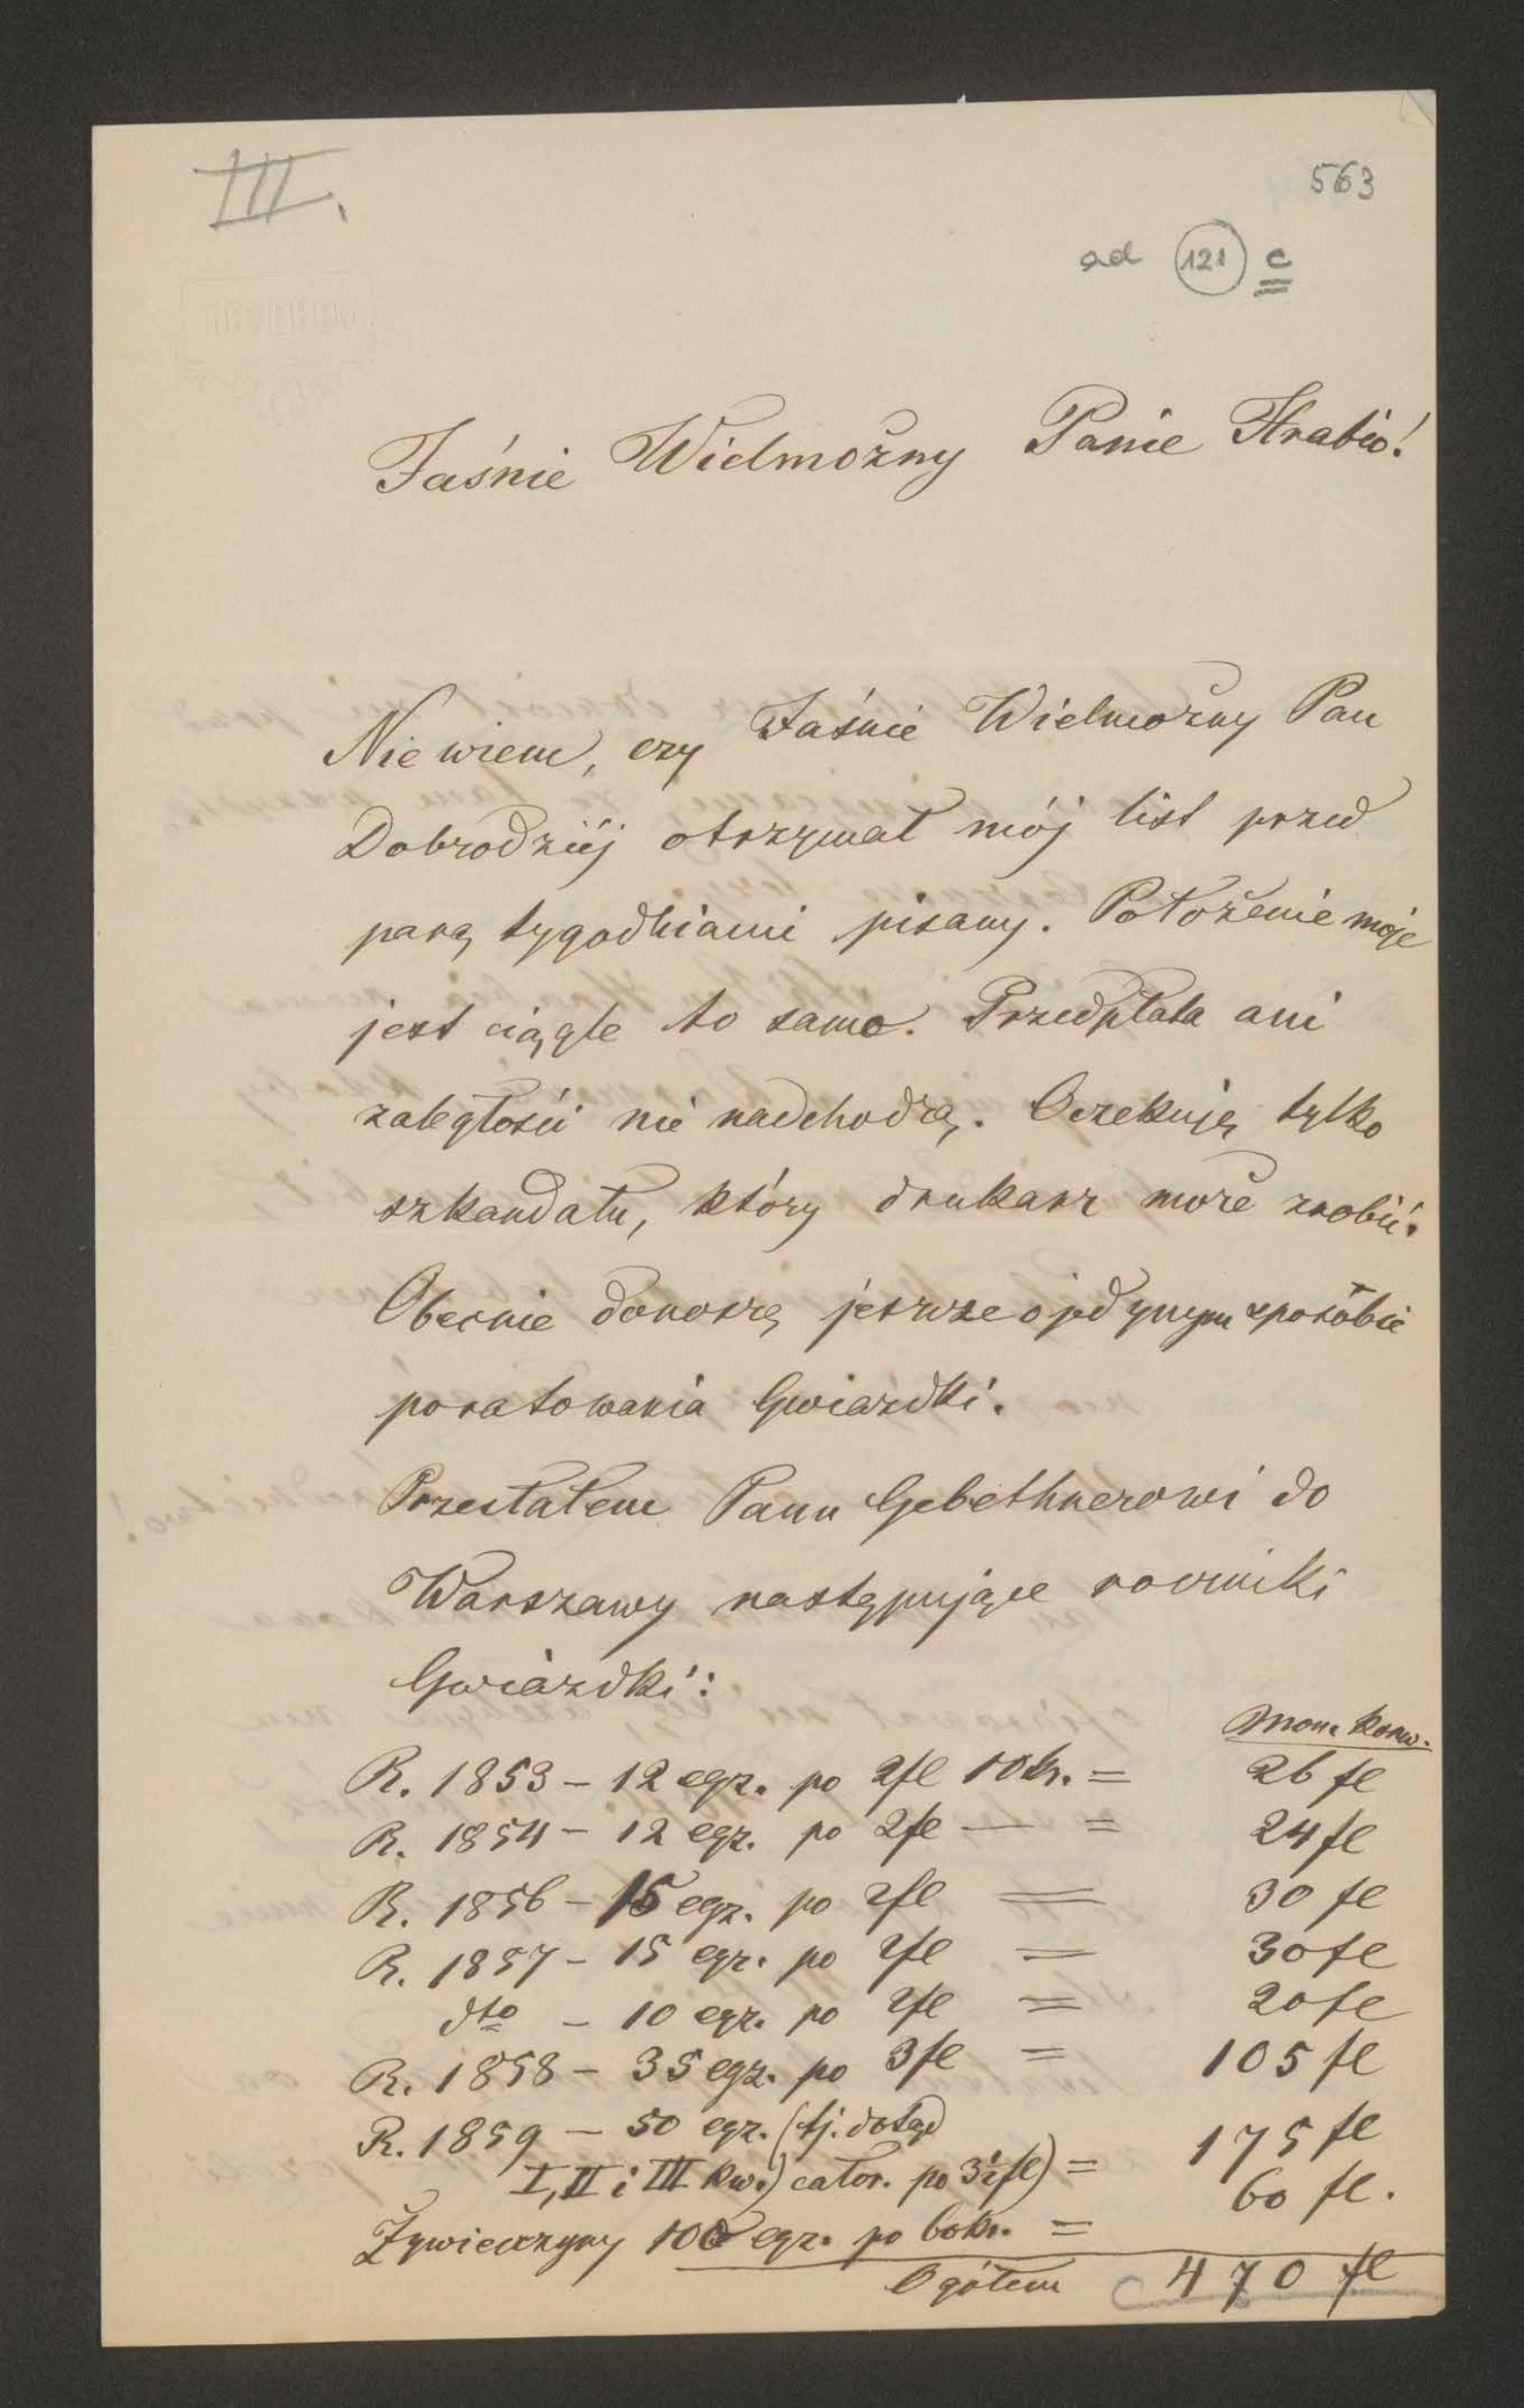 III.
563
ad 121 c
Jaśnie Wielmożny Panie Hrabio!
Nie wiem, czy Jaśnie Wielmożny Pan
Dobrodziéj otrzymał mój list przed
parą tygodniami pisany. Położenie moje
jest ciągle to samo. Przedpłata ani
zaległości nie nadchodzą. Oczekuję tylko
szkandału, który drukarz może zrobić.
Obecnie donoszę jeszcze o jedynym sposobie
poratowania Gwiazdki.
Przesłałem Panu Gebethnerowi do
Warszawy następujące roczniki
Gwiazdki:
Mon. Konw.
R. 1853 – 12 egz. po 2 fl 10 kr. = 26 fl
R. 1854 – 12 egz. po 2 fl — = 24 fl
R. 1856 – 15 egz. po 2 fl = 30 fl
R. 1857 – 15 egz. po 2 fl = 30 fl
dto – 10 egz. po 2 fl = 20 fl
R. 1858 – 35 egz. po 3 fl = 105 fl
R. 1859 – 50 egz. (tj. dotąd
I, II i III kw.) całor. po 3½ fl) = 175 fl
Żywiecczyny 100 egz. po 60 kr. = 60 fl.
Ogółem 470 fl